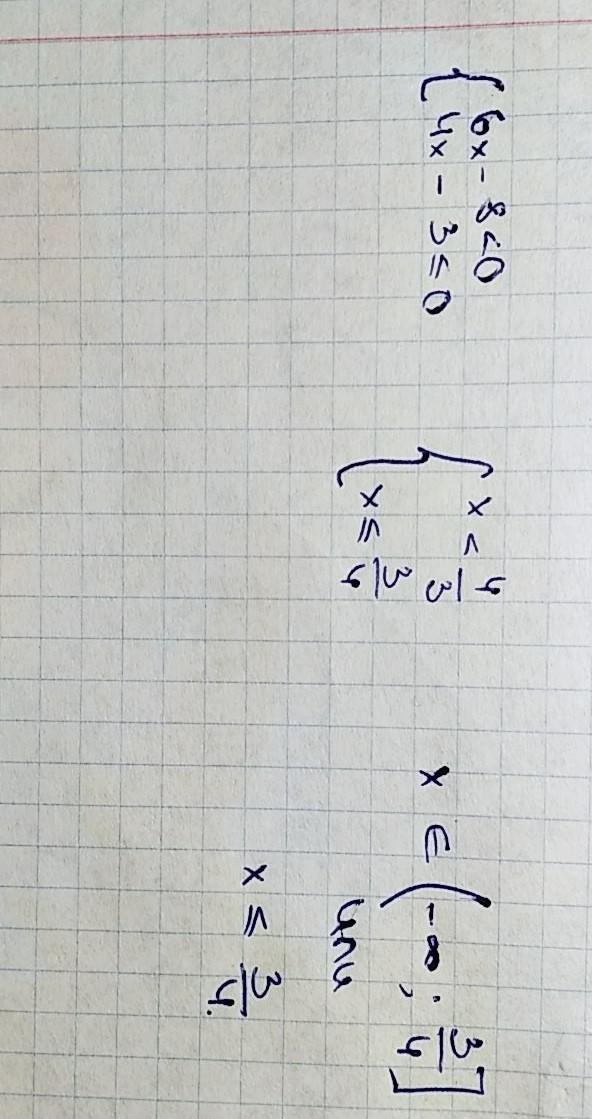 { 6x - 8 < 0
4x - 3 ≤ 0
{ x < 4/3
x ≤ 3/4
x ∈ (-∞; 3/4]
или
x ≤ 3/4.